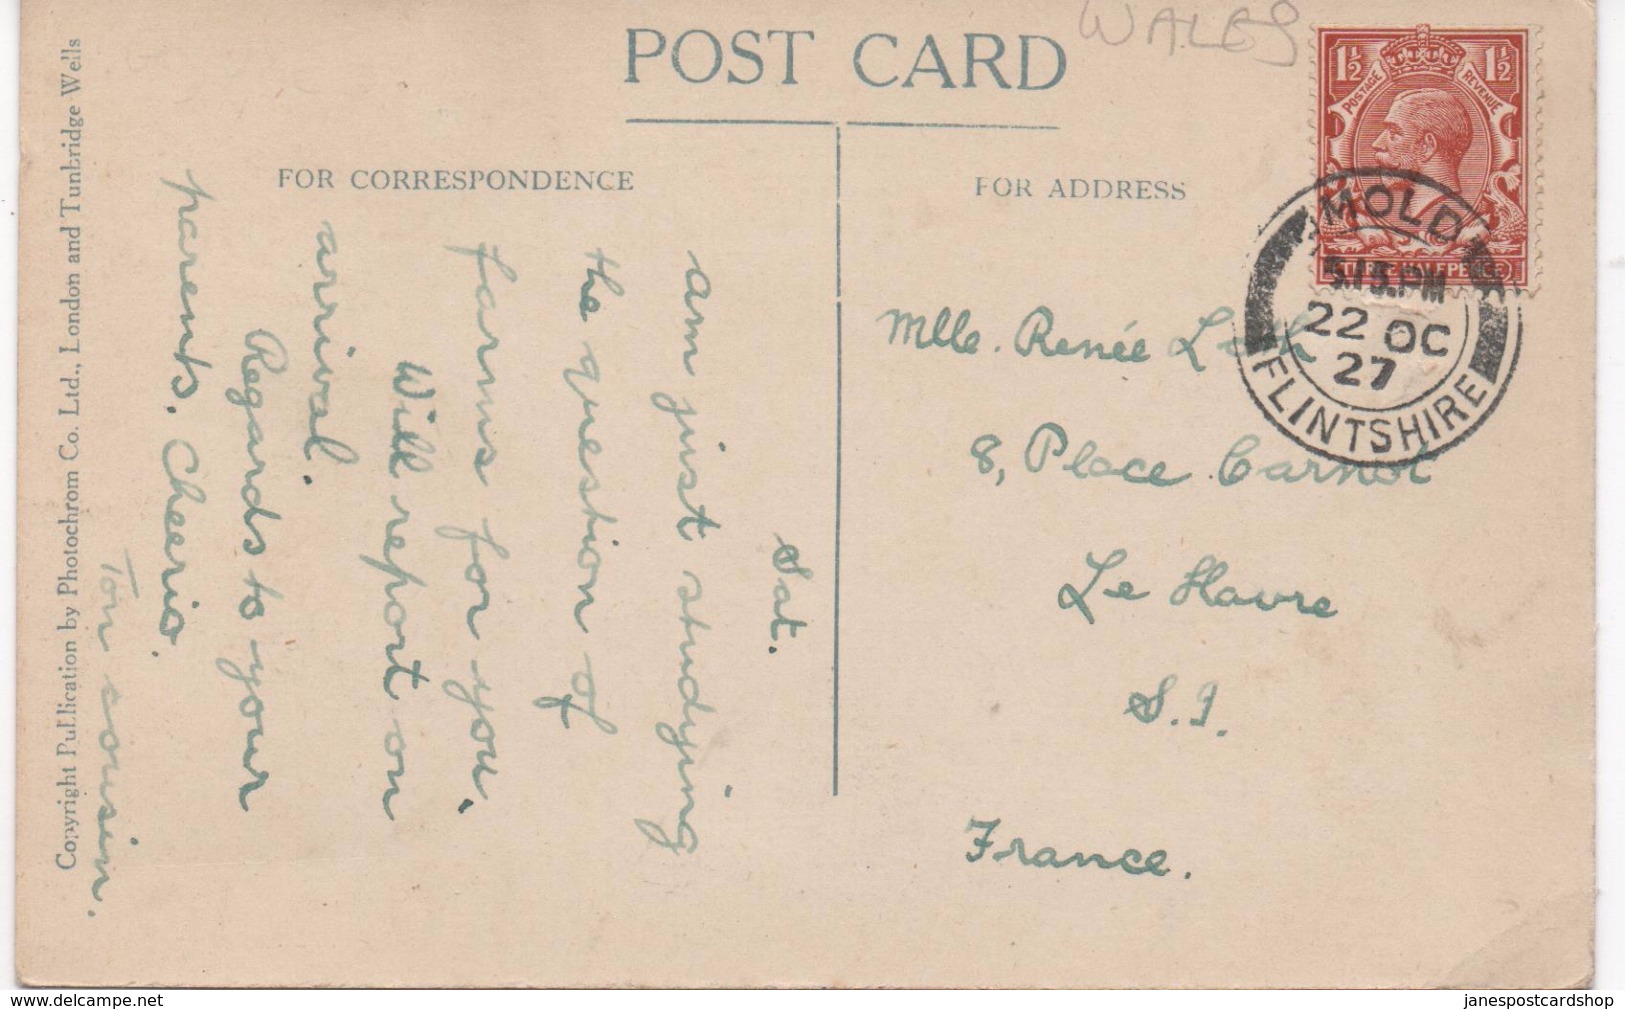 WALES
POST CARD
FOR CORRESPONDENCE
FOR ADDRESS
1½ 1½
POSTAGE REVENUE
THREE HALFPENCE
MOLD
5.15.PM
22 OC
27
FLINTSHIRE
Sat.
am just studying
the question of
farms for you.
Will report on
arrival.
Regards to your
parents. Cheerio.
Ton cousin.
Mlle. Renée
8, Place Carnot
Le Havre
S.I.
France.
Copyright Publication by Photochrom Co. Ltd., London and Tunbridge Wells
www.delcampe.net
janespostcardshop